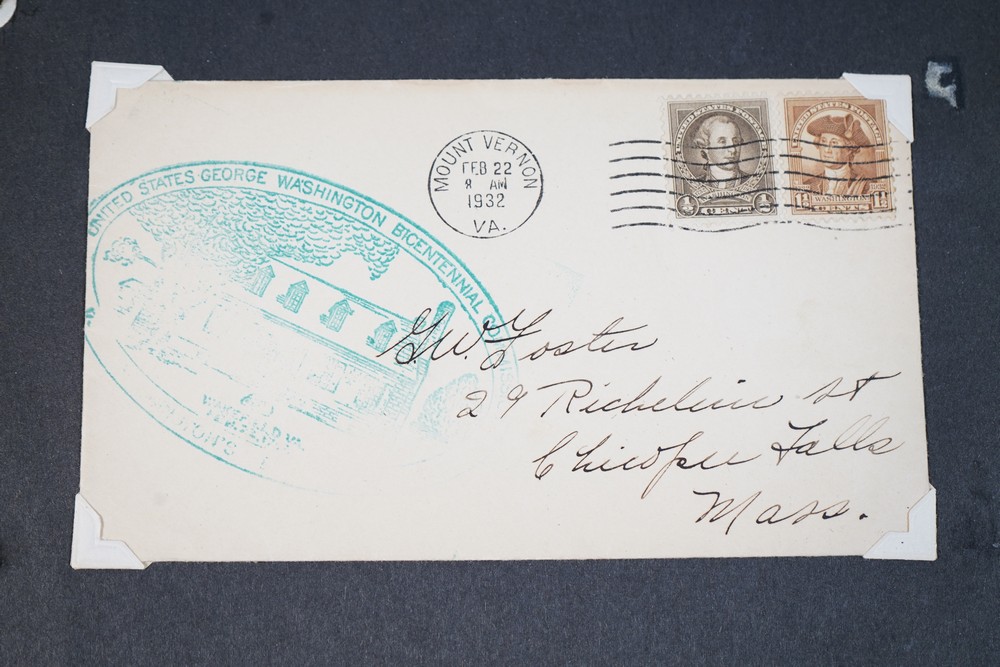 UNITED STATES GEORGE WASHINGTON BICENTENNIAL
WAKEFIELD VA.
MOUNT VERNON
FEB 22
8 AM
1932
VA.
UNITED STATES POSTAGE
WASHINGTON
½ CENT ½
UNITED STATES POSTAGE
WASHINGTON
1½ CENTS 1½
G.W. Foster
29 Richelieu St
Chicopee Falls
Mass.